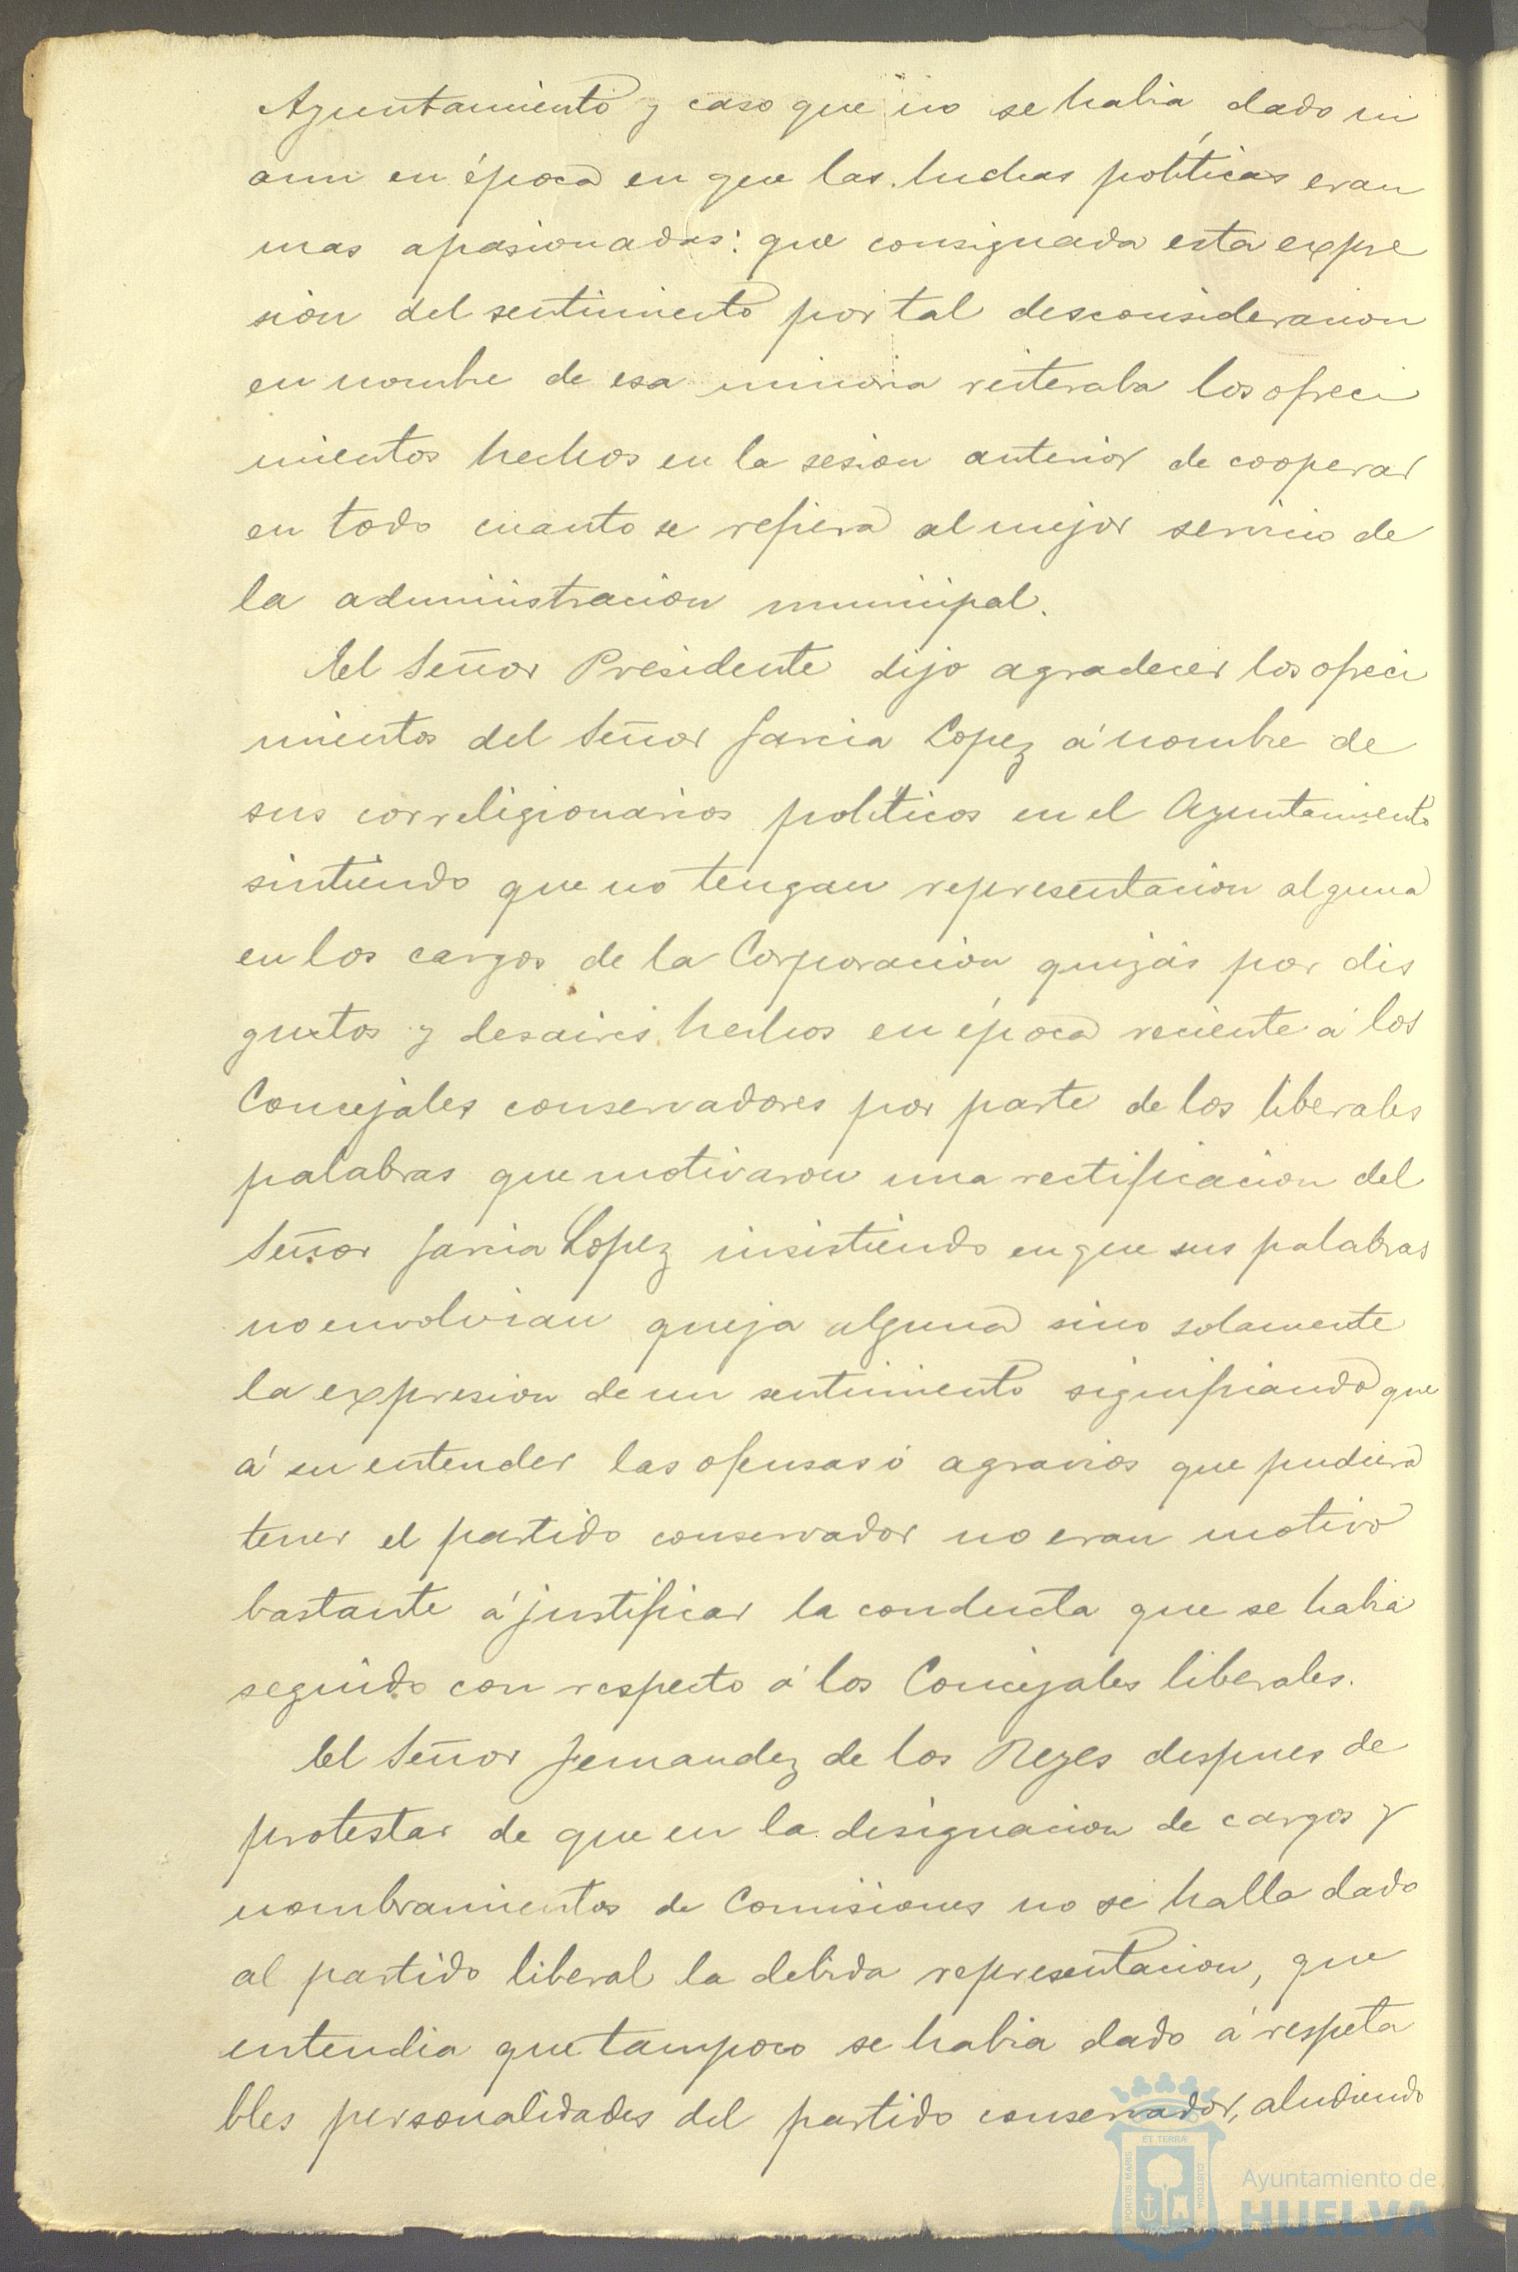 Ayuntamiento y caso que no se habia dado ni
aun en época en que las luchas políticas eran
mas apasionadas: que consignada esta expre
sion del sentimiento por tal desconsideracion
en nombre de esa minoria reiteraba los ofreci
mientos hechos en la sesion anterior de cooperar
en todo cuanto se refiera al mejor servicio de
la administracion municipal.
El Señor Presidente dijo agradecer los ofreci
mientos del Señor Garcia Lopez á nombre de
sus correligionarios políticos en el Ayuntamiento
sintiendo que no tengan representacion alguna
en los cargos de la Corporacion quizás por dis
gustos y desaires hechos en época reciente á los
Concejales conservadores por parte de los liberales
palabras que motivaron una rectificacion del
Señor Garcia Lopez insistiendo en que sus palabras
no envolvian queja alguna sino solamente
la expresion de un sentimiento significando que
á su entender las ofensas ó agravios que pudiera
tener el partido conservador no eran motivo
bastante á justificar la conducta que se habia
seguido con respecto á los Concejales liberales.
El Señor Fernandez de los Reyes despues de
protestar de que en la designacion de cargos y
nombramientos de Comisiones no se halla dado
al partido liberal la debida representacion, que
entendia que tampoco se habia dado á respeta
bles personalidades del partido conservador, aludiendo
PORTUS MARIS
ET TERRÆ
CUSTODIA
Ayuntamiento de
HUELVA